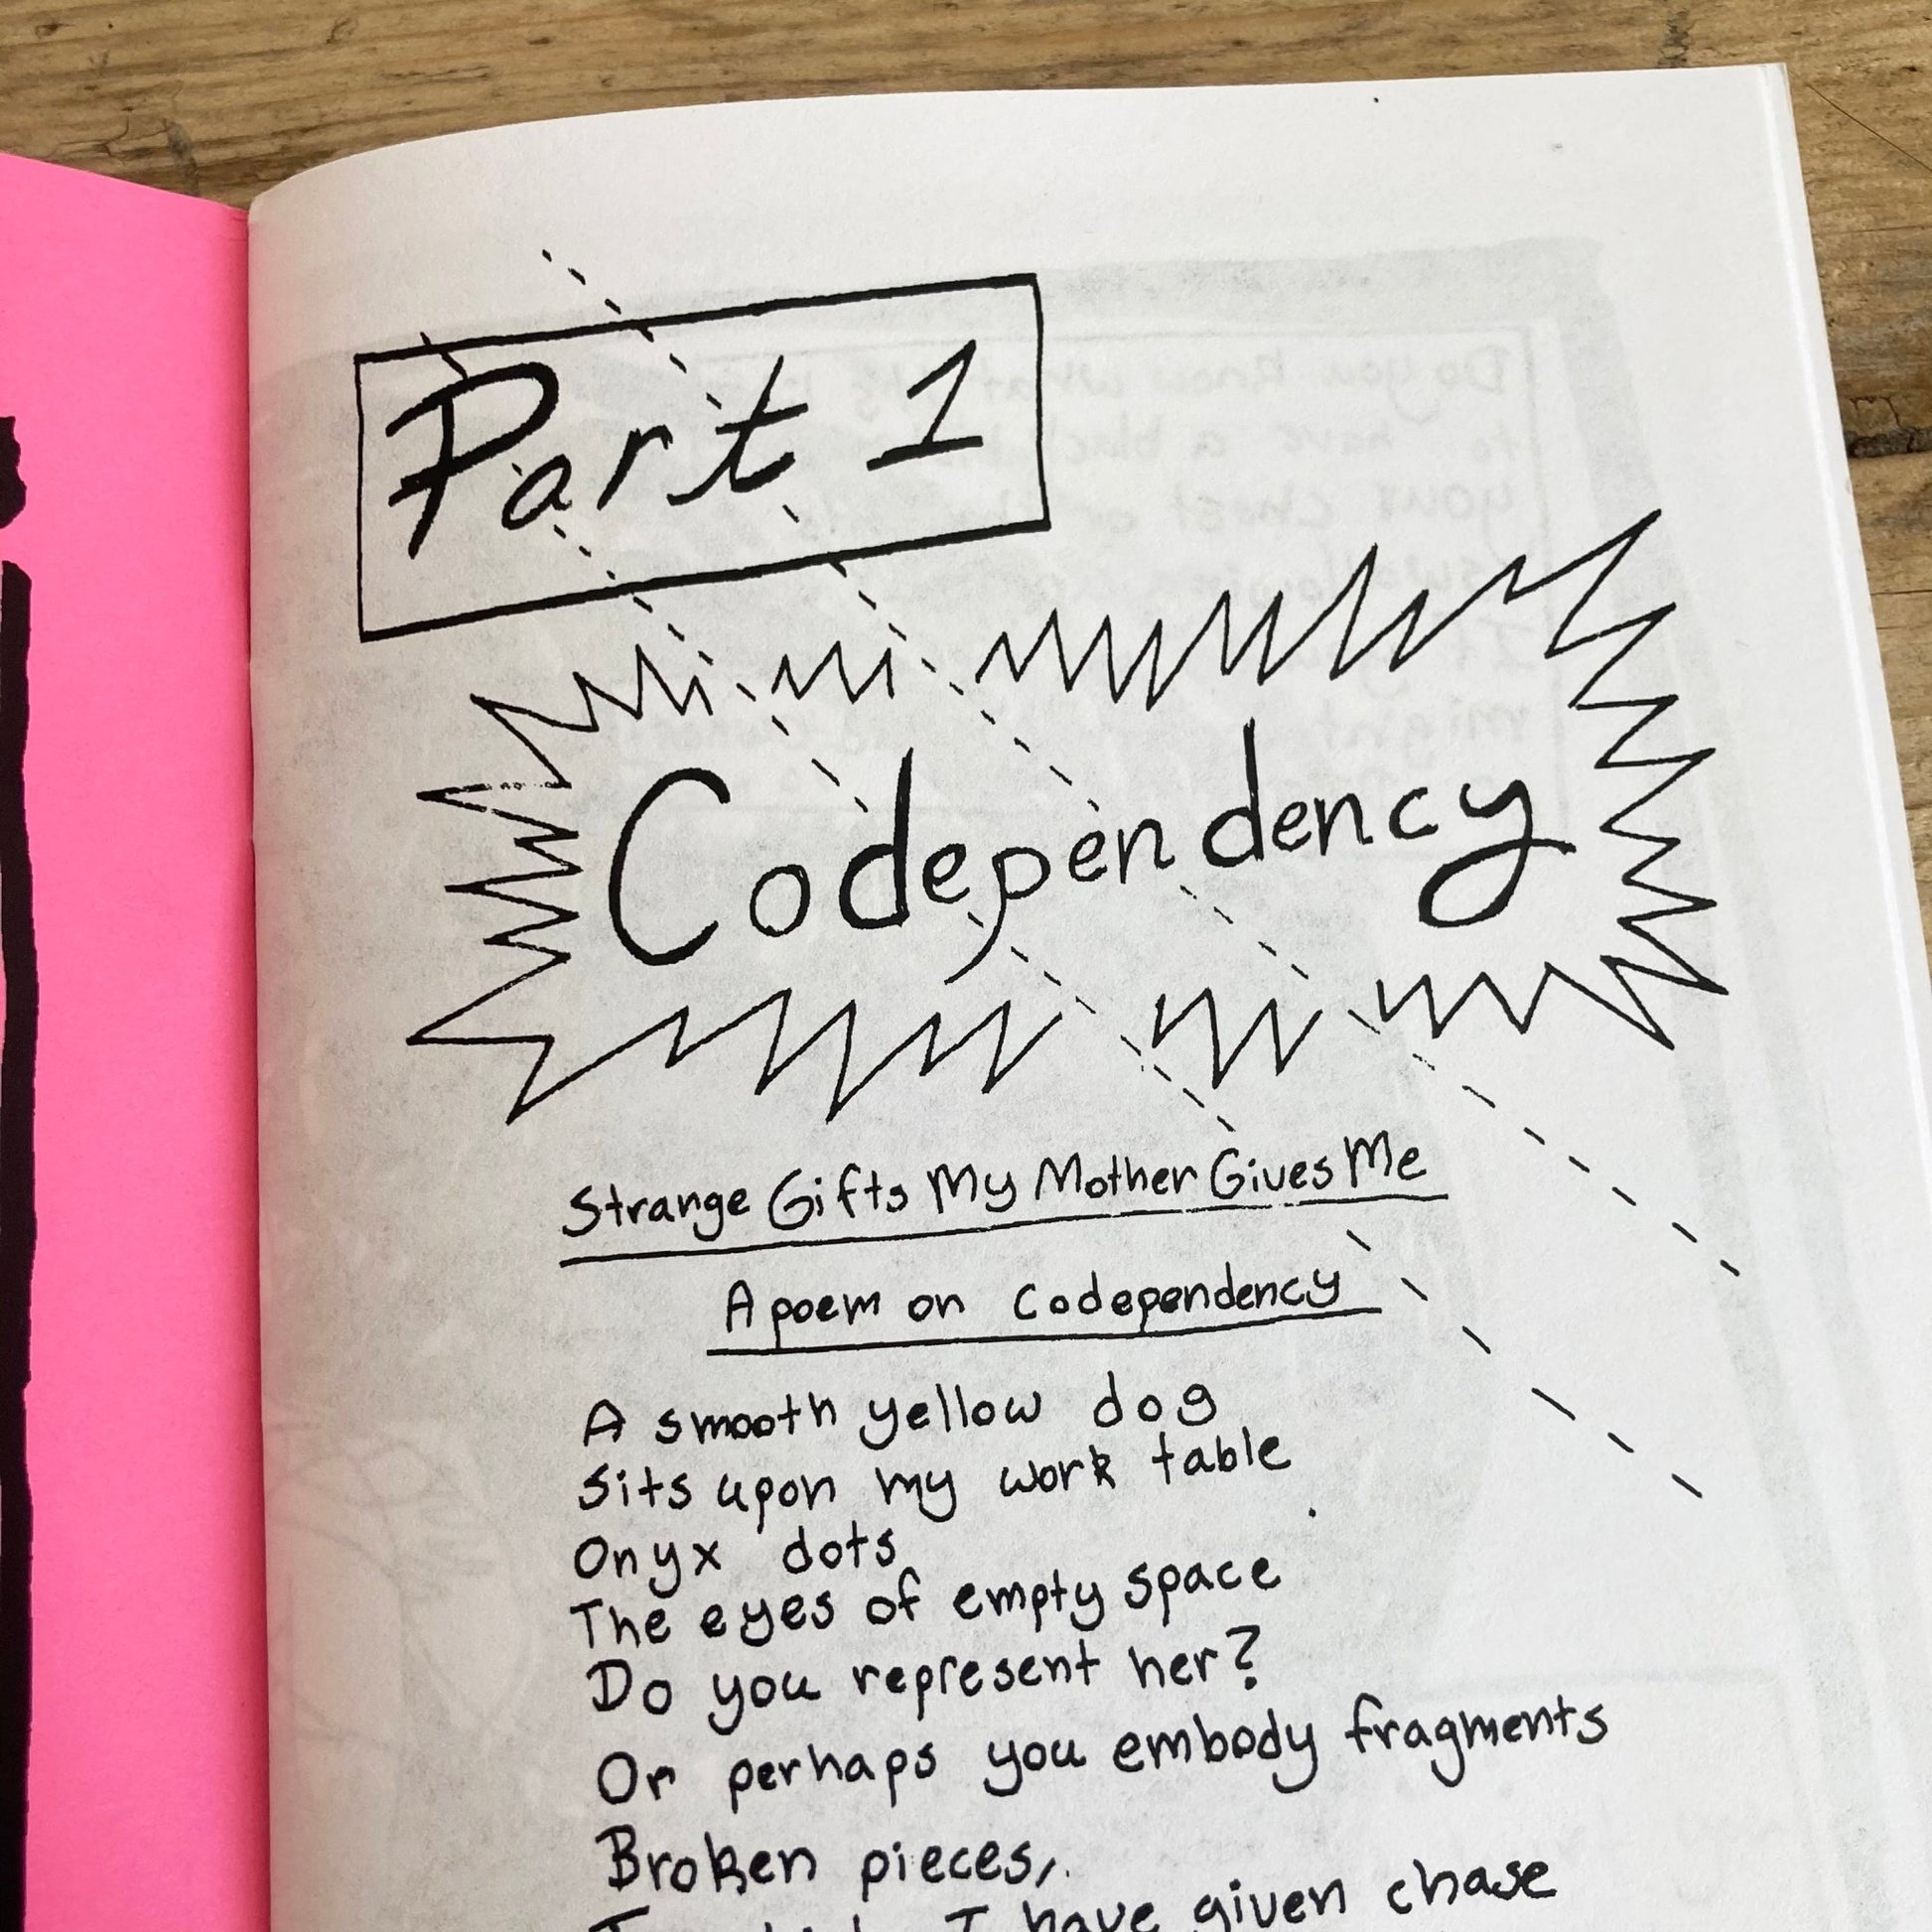 Part 1
Codependency
Strange Gifts My Mother Gives Me
A poem on Codependency
A smooth yellow dog
Sits upon my work table
Onyx dots
The eyes of empty space
Do you represent her?
Or perhaps you embody fragments
Broken pieces,
I have given chase